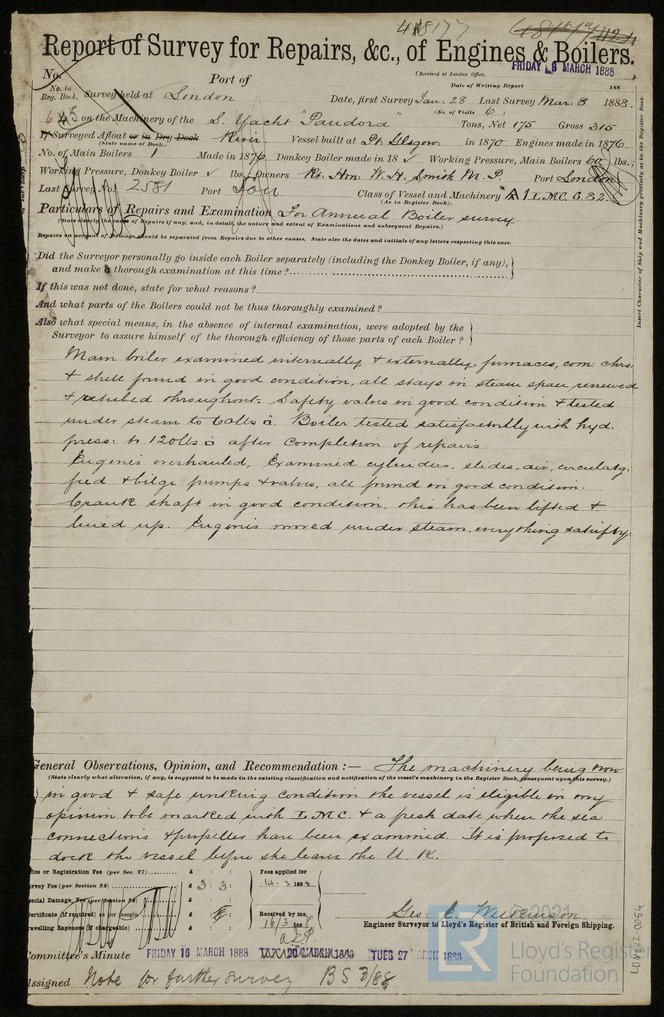 48177
Report of Survey for Repairs, &c., of Engines & Boilers.
(Received at London Office, FRIDAY 9 MARCH 1888
No. Port of
Date of Writing Report 188
No. in Reg. Book. Survey held at London Date, first Survey Jan. 28 Last Survey Mar. 8 1888.
(No. of Visits 6)
645 on the Machinery of the S. Yacht "Pandora" Tons, Net 175 Gross 315
If Surveyed Afloat or in Dry Dock River Vessel built at Pt. Glasgow in 1870 Engines made in 1876
(State name of Dock.)
No. of Main Boilers 1 Made in 1876 Donkey Boiler made in 18 ✓ Working Pressure, Main Boilers 60 lbs.
Working Pressure, Donkey Boiler ✓ lbs. Owners Rt. Hon. W. H. Smith M. P. Port London
Last Survey No. 2581 Port Class of Vessel and Machinery A1 LMC. 6.82.
(As in Register Book).
Particulars of Repairs and Examination For Annual Boiler survey
(State clearly the nature of Repairs if any, and, in detail, the nature and extent of Examinations and subsequent Repairs.)
Repairs on account of Damage should be separated from Repairs due to other causes. State also the dates and initials of any letters respecting this case.
Did the Surveyor personally go inside each Boiler separately (including the Donkey Boiler, if any),
and make a thorough examination at this time?
If this was not done, state for what reasons?
And what parts of the Boilers could not be thus thoroughly examined?
Also what special means, in the absence of internal examination, were adopted by the
Surveyor to assure himself of the thorough efficiency of those parts of each Boiler?
Insert Character of Ship and Machinery precisely as in the Register Book.
Main boiler examined internally & externally, furnaces, com: chrs:
& shell found in good condition, all stays in steam space renewed
& retubed throughout. Safety valves in good condition & tested
under steam to 60lbs □. Boiler tested satisfactorily with hyd.
press: to 120lbs □ after completion of repairs.
Engines overhauled, Examined cylinders, slides, air, circulatg.
feed & bilge pumps & valves, all found in good condition.
Crank shaft in good condition, this has been lifted &
lined up. Engines moved under steam, everything satisfty.
General Observations, Opinion, and Recommendation:— The machinery being now
(State clearly what alteration, if any, is suggested to be made in the existing classification and notification of the vessel's machinery in the Register Book, consequent upon this survey.)
in good & safe working condition the vessel is eligible in my
opinion to be marked with LMC & a fresh date when the sea
connections & propeller have been examined. It is proposed to
dock the vessel before she leaves the U. K.
Office or Registration Fee (per Sec. 27) £ : : Fees applied for
Survey Fee (per Section 28) £ 3 : 3 : 14.3.1888
Special Damage, Fee (per Section
Certificate (if required) as per margin £ : : Received by me,
Travelling Expenses (if chargeable) £ : : 16/3/1888
Geo. C. Wilkinson
Engineer Surveyor to Lloyd's Register of British and Foreign Shipping.
Committee's Minute FRIDAY 16 MARCH 1888 TUES 27 MARCH 1888
Assigned Note for further survey BS 3/88
© 2021
LR
Lloyd's Register
Foundation